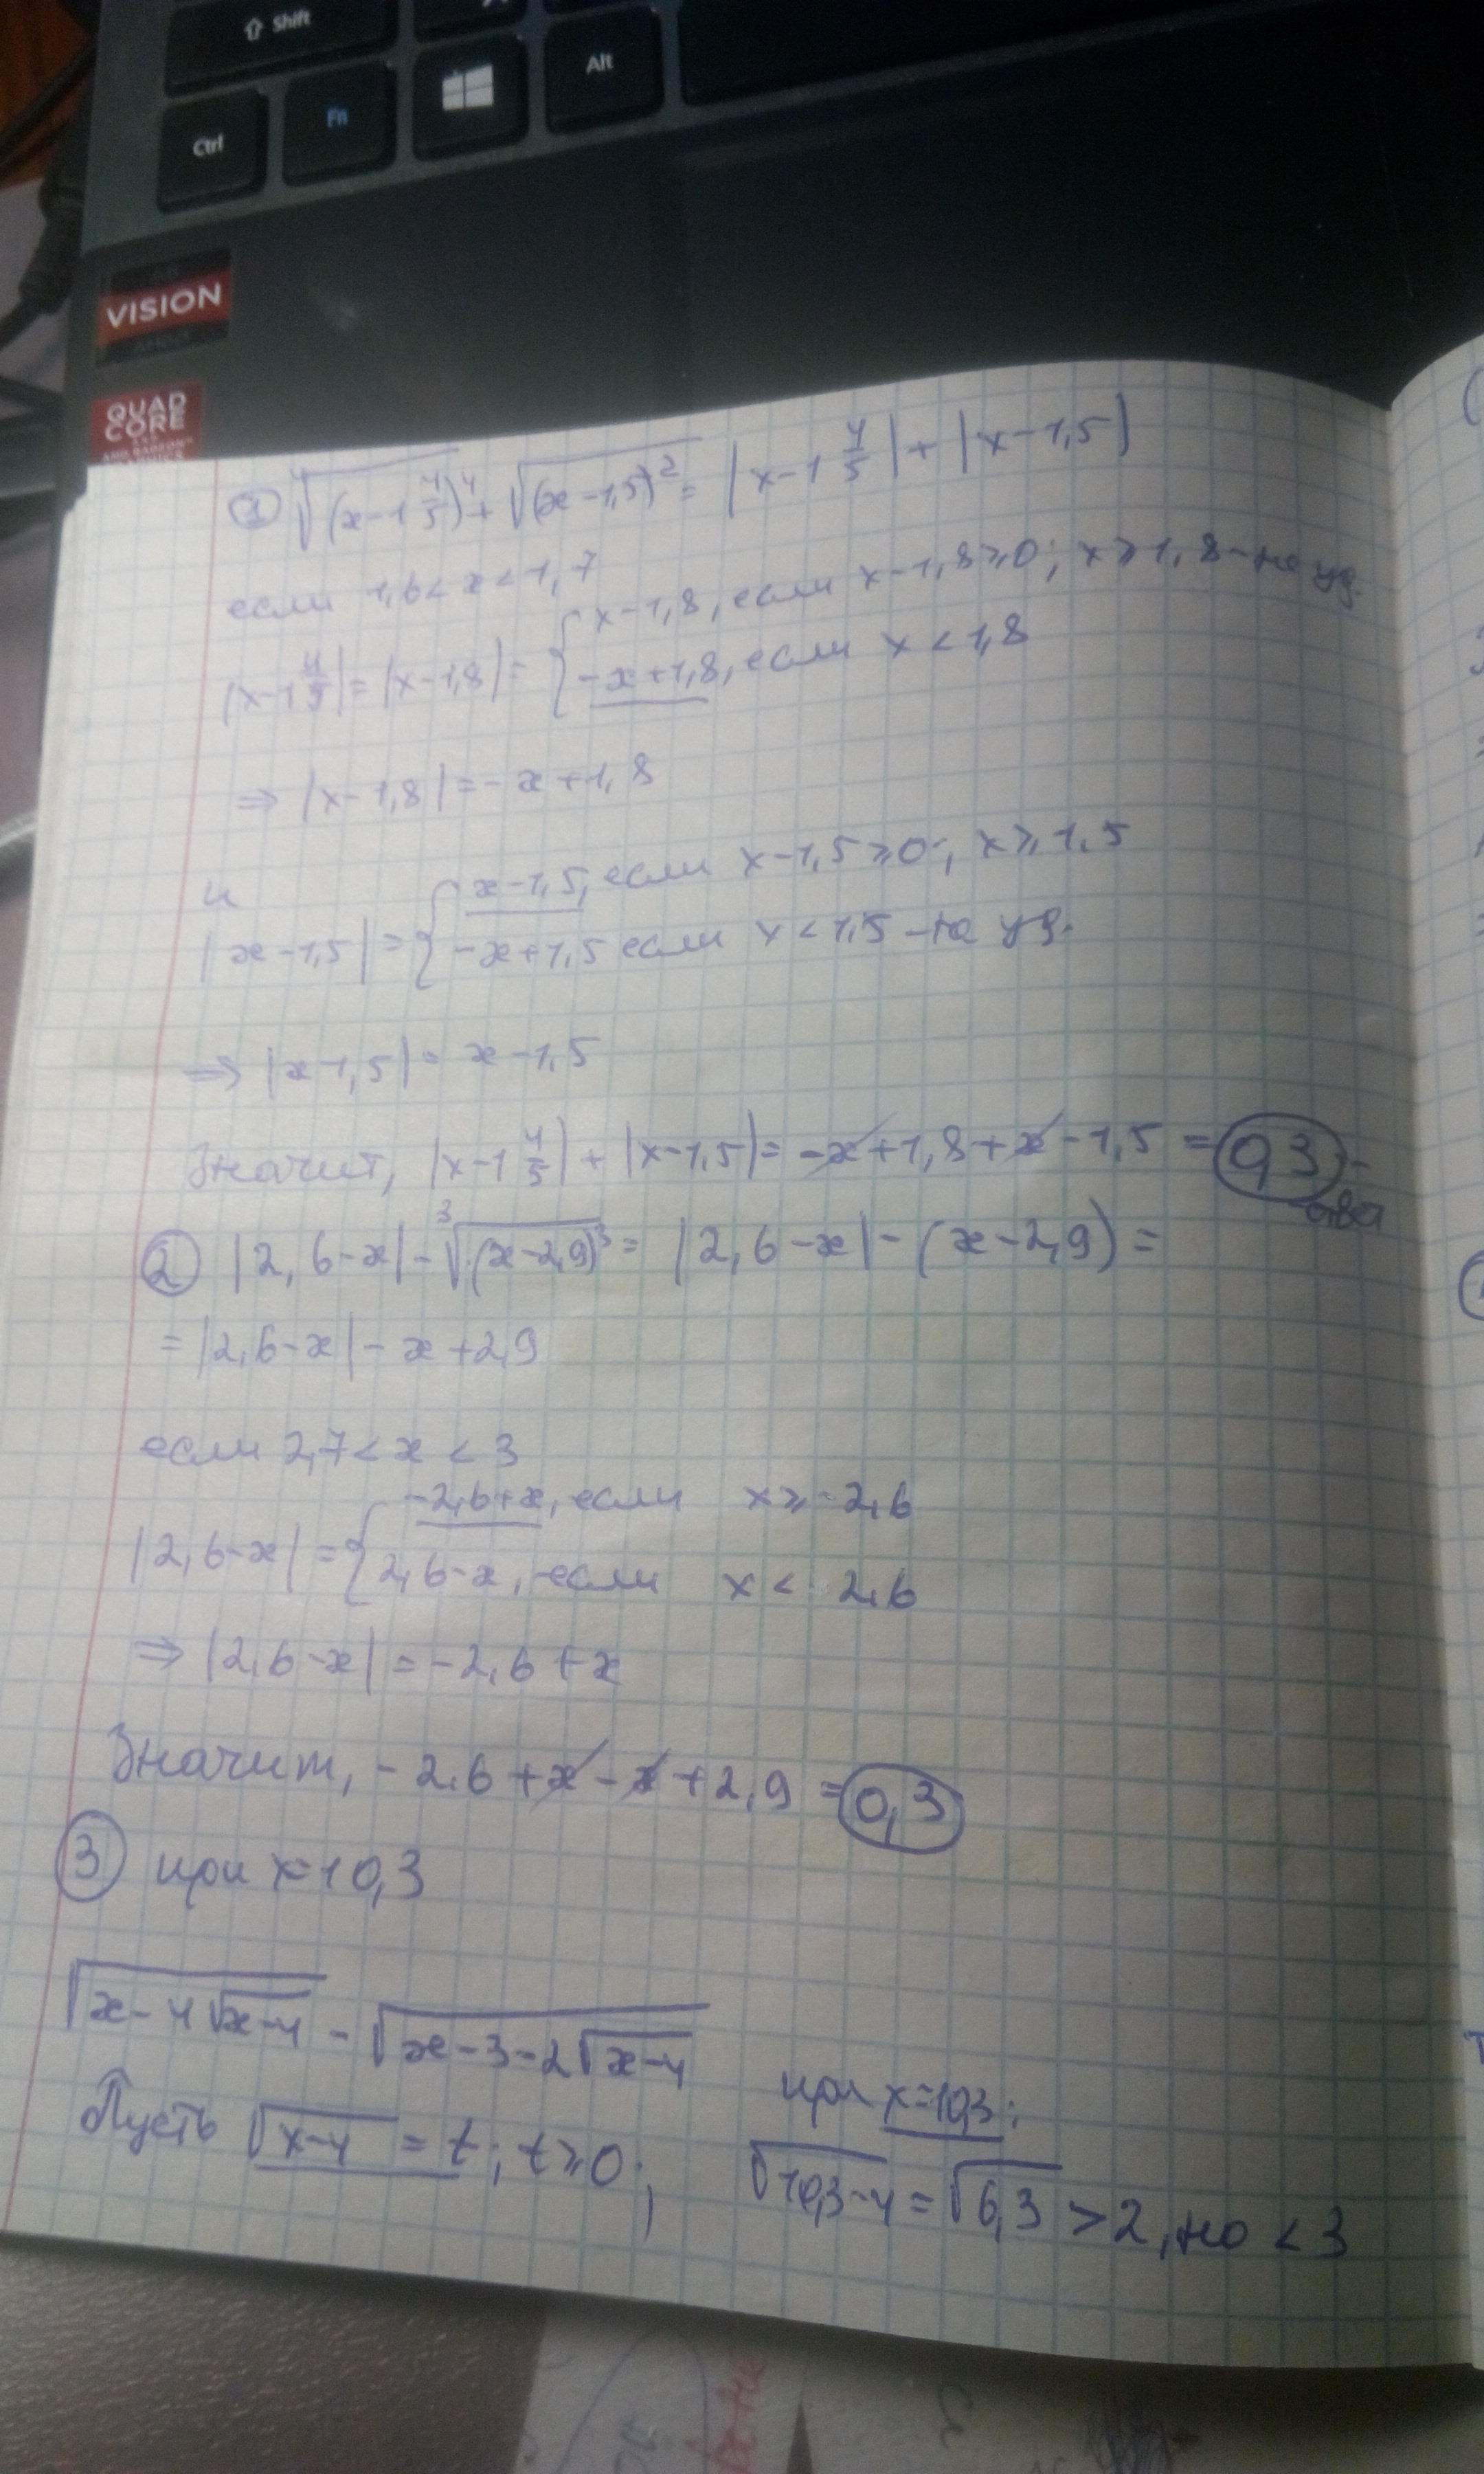 ⇧ Shift
Ctrl
Fn
Alt
VISION
QUAD
CORE
① ⁴√(x-1 4/5)⁴ + √(x-1,5)² = |x-1 4/5| + |x-1,5|
если 1,6 < x < 1,7
|x-1 4/5| = |x-1,8| = { x-1,8, если x-1,8 ⩾ 0; x ⩾ 1,8 - не уд.
-x+1,8, если x < 1,8
⇒ |x-1,8| = -x+1,8
и
|x-1,5| = { x-1,5, если x-1,5 ⩾ 0; x ⩾ 1,5
-x+1,5 если x < 1,5 - не уд.
⇒ |x-1,5| = x-1,5
Значит, |x-1 4/5| + |x-1,5| = -x+1,8+x-1,5 = 0,3 -
ответ
② |2,6-x| - ³√(x-2,9)³ = |2,6-x| - (x-2,9) =
= |2,6-x| - x + 2,9
если 2,7 < x < 3
|2,6-x| = { -2,6+x, если x ⩾ 2,6
2,6-x, если x < 2,6
⇒ |2,6-x| = -2,6+x
Значит, -2,6+x-x+2,9 = 0,3
③ при x=10,3
√(x-4√(x-4)) - √(x-3-2√(x-4))
при x=10,3:
Пусть √(x-4) = t; t ⩾ 0;
√(10,3-4) = √6,3 > 2, но < 3